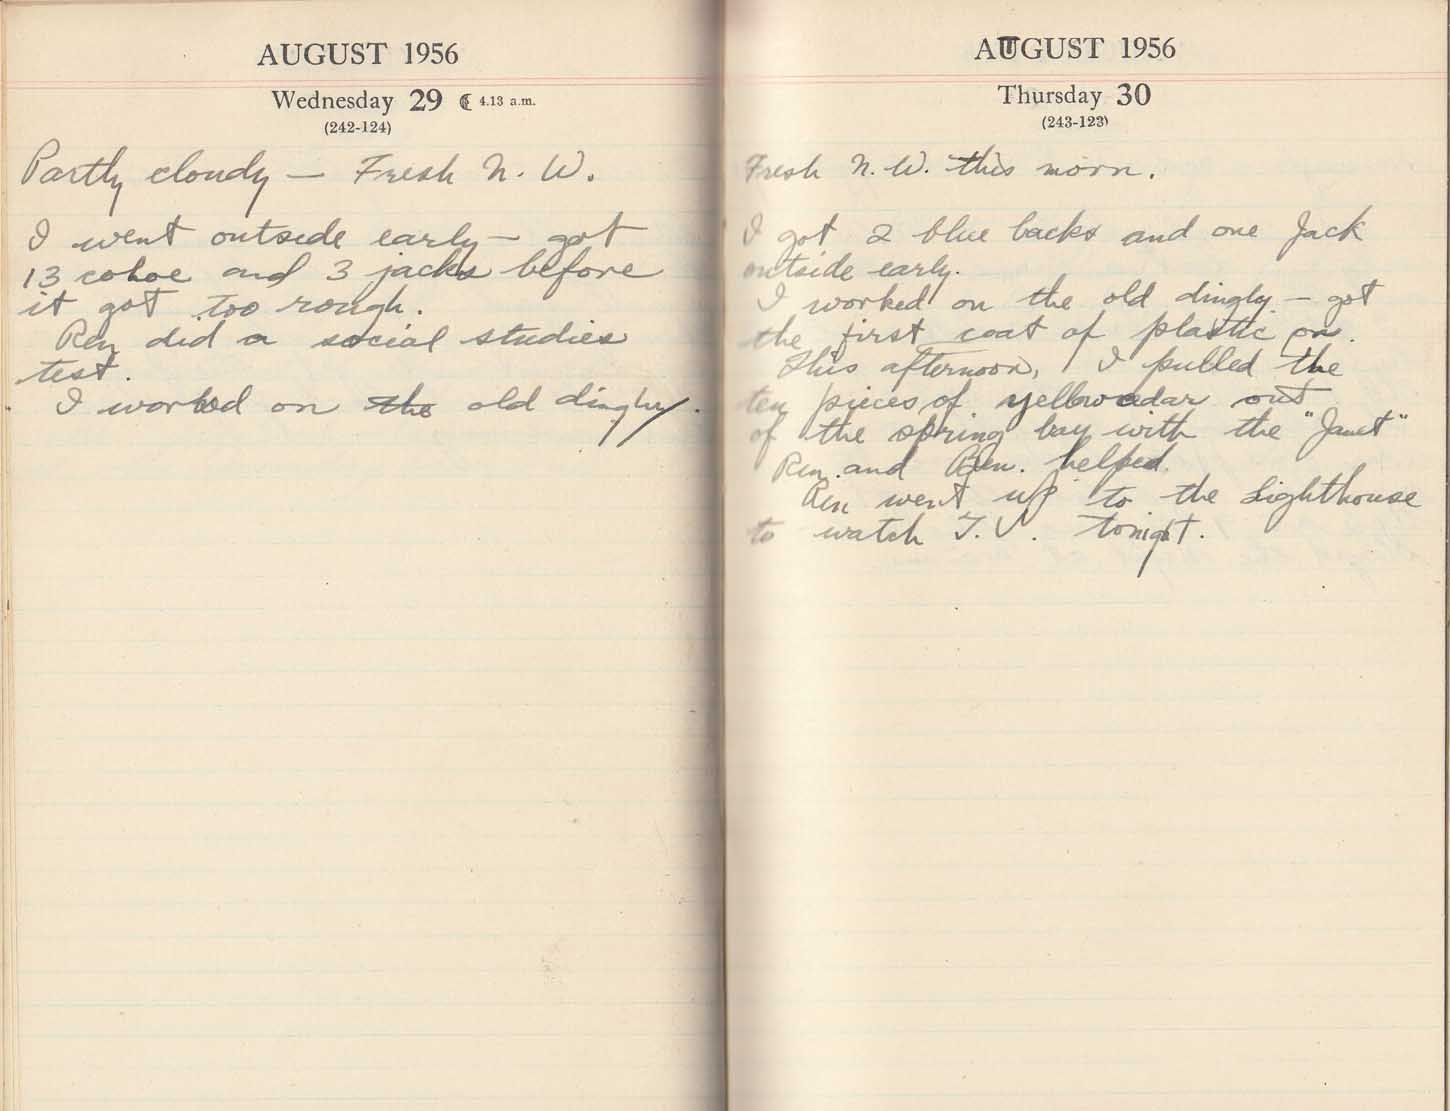 AUGUST 1956
Wednesday 29 ☾ 4.13 a.m.
(242-124)
Partly cloudy — Fresh N. W.
I went outside early — got
13 cohoe and 3 jacks before
it got too rough.
Ren did a social studies
test.
I worked on the old dinghy.
AUGUST 1956
Thursday 30
(243-123)
Fresh N. W. this morn.
I got 2 blue backs and one Jack
outside early.
I worked on the old dinghy — got
the first coat of plastic on.
This afternoon, I pulled the
ten pieces of yellow cedar out
of the spring bay with the "Janet"
Ren and helped.
Ren went up to the Lighthouse
to watch T.V. tonight.